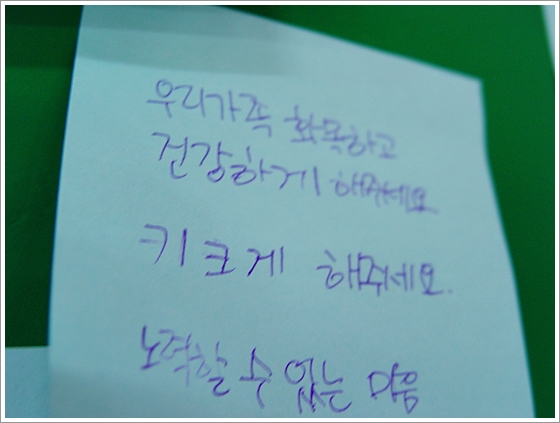 우리가족 화목하고
건강하게 해주세요
키크게 해주세요.
노력할 수 있는 마음